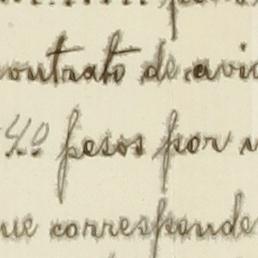 contrato de avi
pesos por
ue corresponde